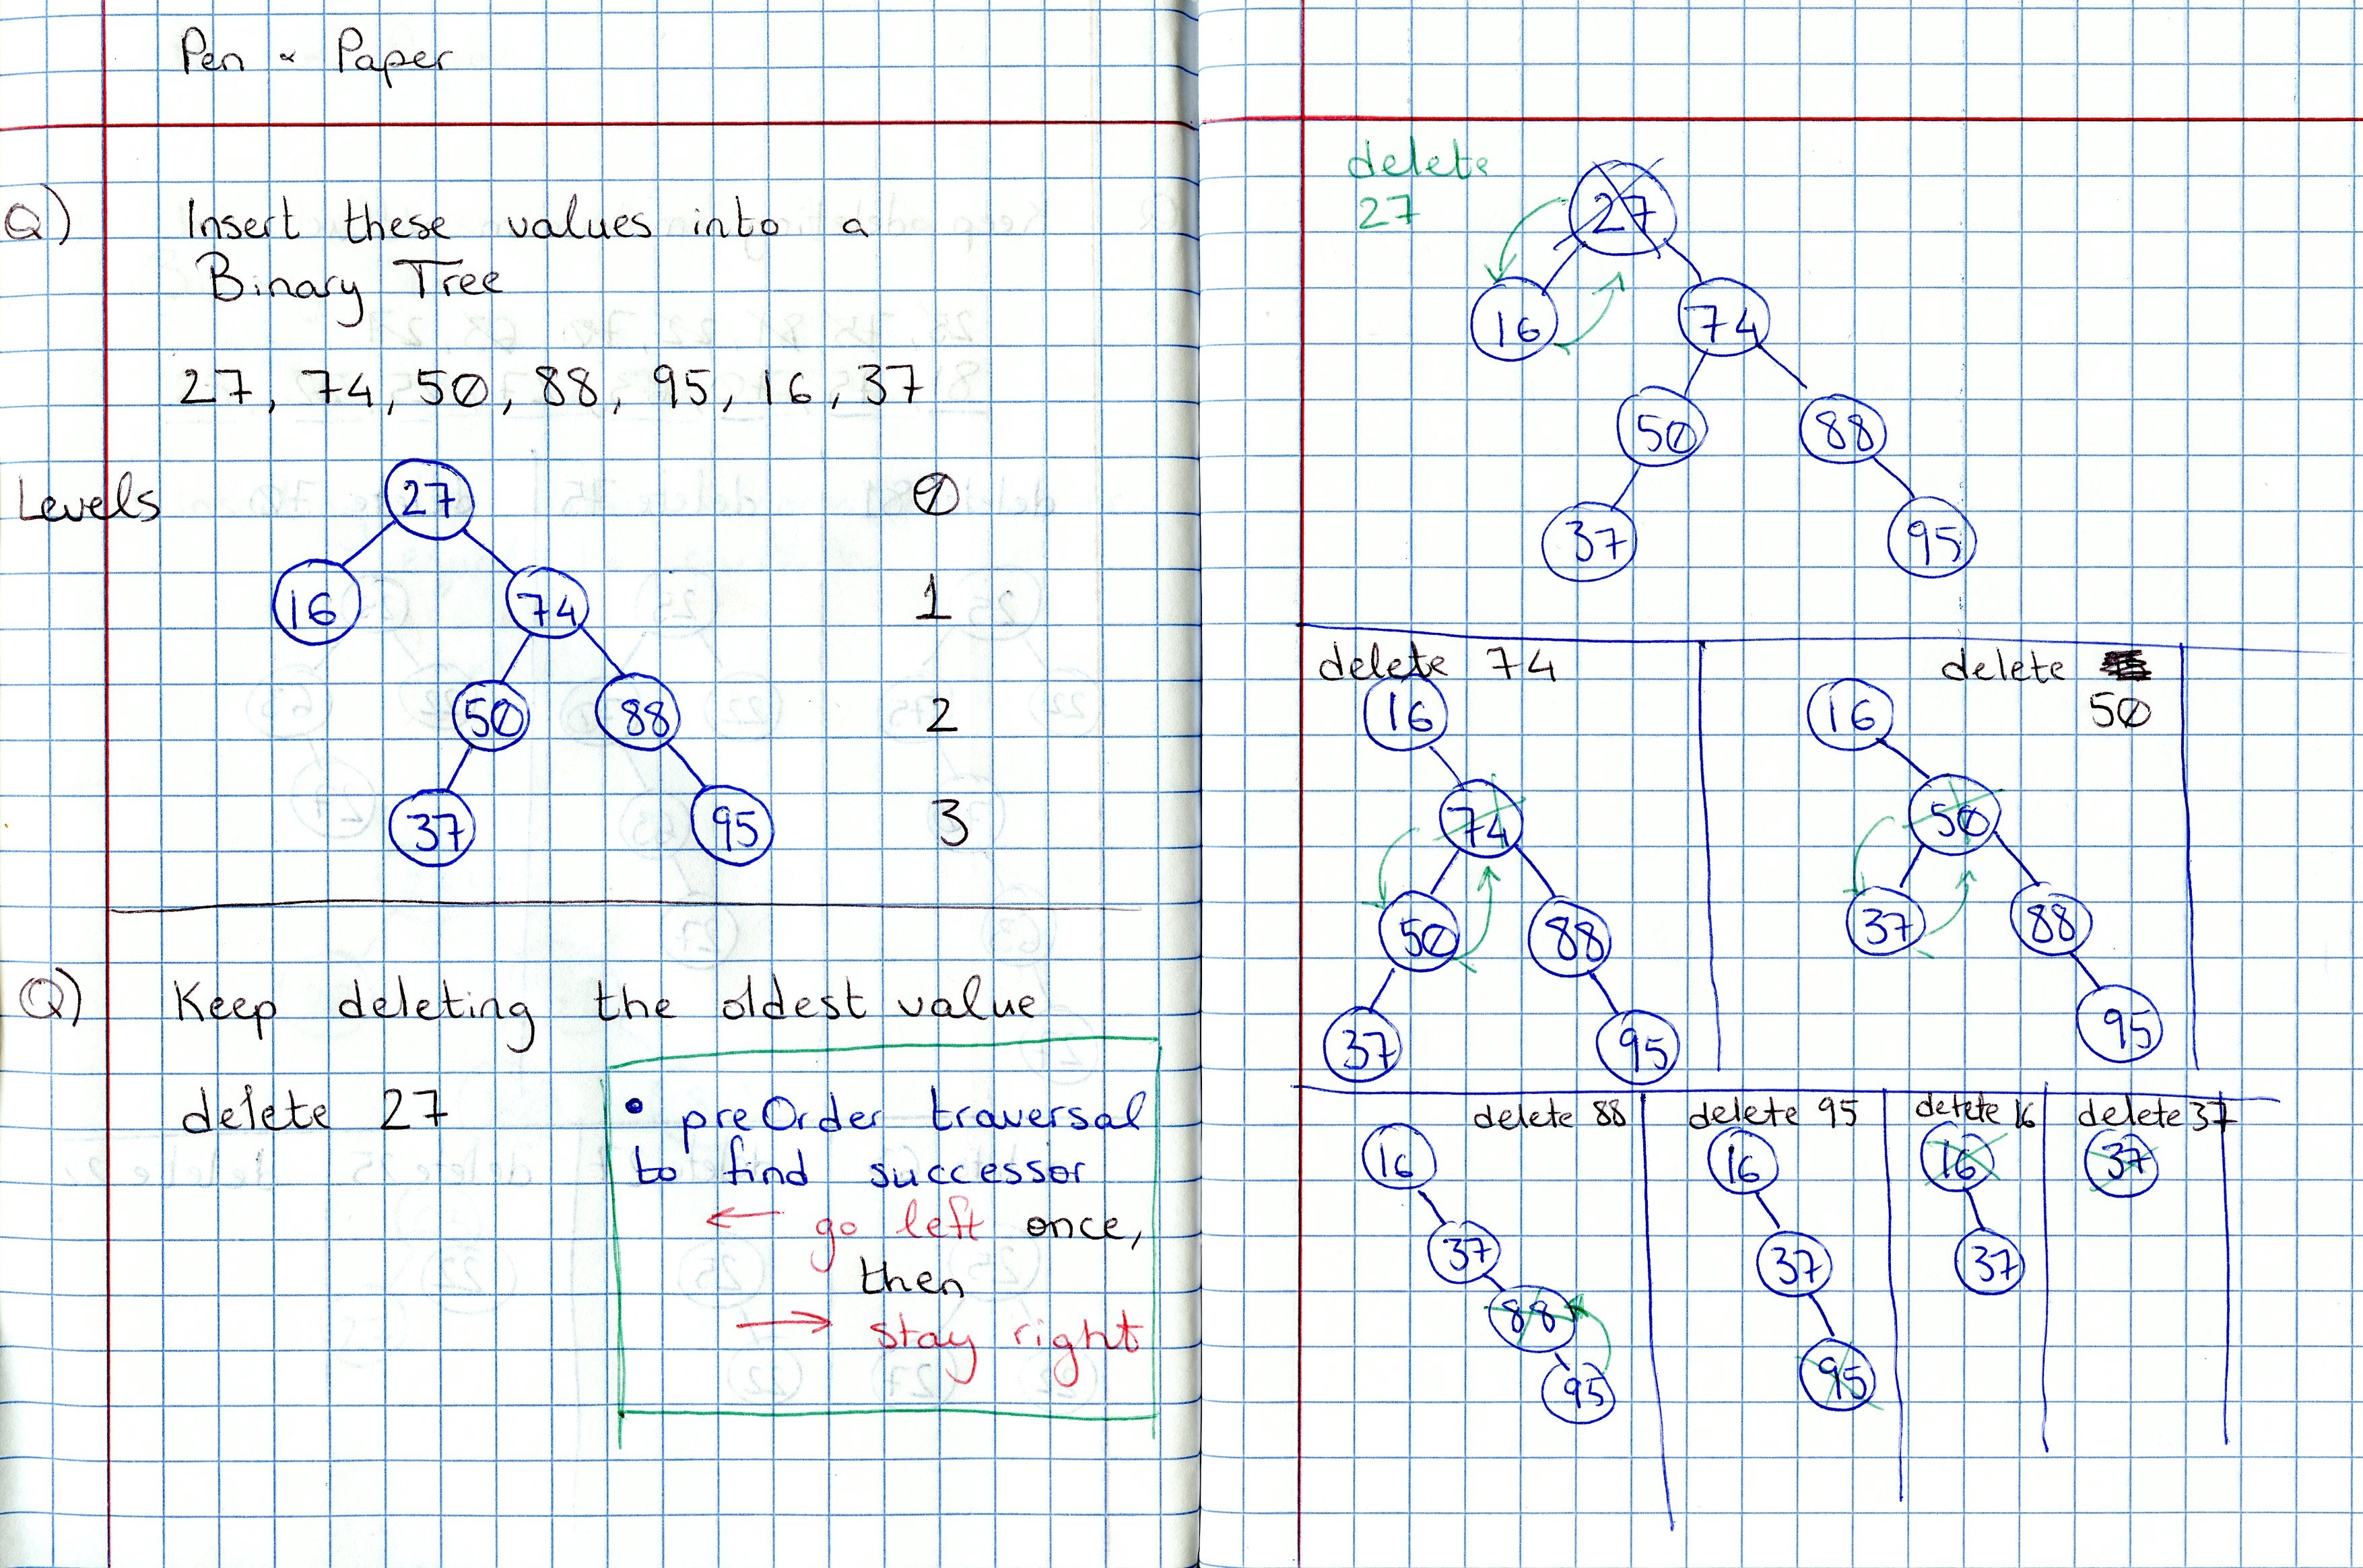 Pen & Paper
Q) Insert these values into a
Binary Tree
27, 74, 50, 88, 95, 16, 37
Levels
27 0
16 74 1
50 88 2
37 95 3
Q) Keep deleting the oldest value
delete 27
• preOrder traversal
to find successor
← go left once,
then
→ stay right
delete
27
27
16 74
50 88
37 95
delete 74
16
74
50 88
37 95
delete
50
16
50
37 88
95
delete 88
16
37
88
95
delete 95
16
37
95
delete 16
16
37
delete 37
37